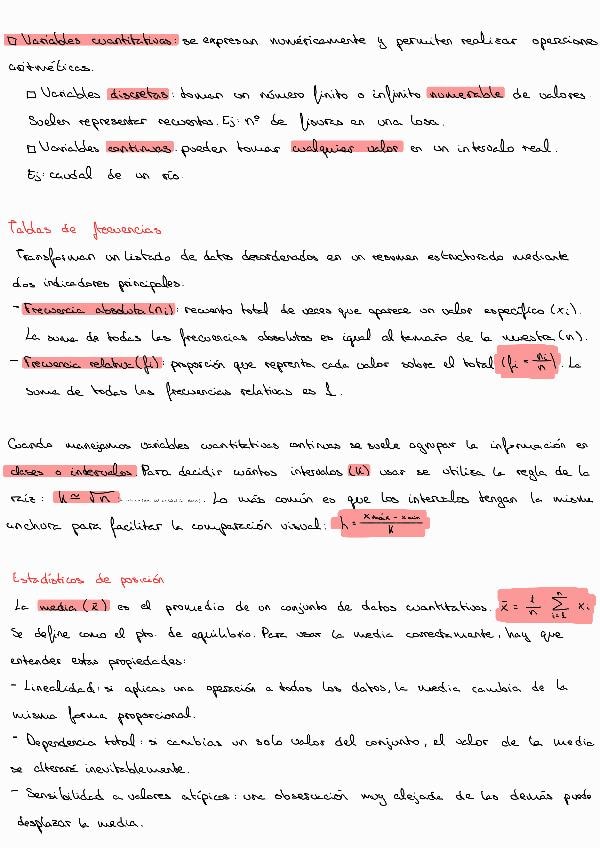 □ Variables cuantitativas: se expresan numéricamente y permiten realizar operaciones
aritméticas.
□ Variables discretas: toman un número finito o infinito numerable de valores.
Suelen representar recuentos. Ej: nº de fisuras en una losa.
□ Variables continuas: pueden tomar cualquier valor en un intervalo real.
Ej: caudal de un río.
Tablas de frecuencias
Transforman un listado de datos desordenados en un resumen estructurado mediante
dos indicadores principales.
- Frecuencia absoluta (ni): recuento total de veces que aparece un valor específico (xi).
La suma de todas las frecuencias absolutas es igual al tamaño de la muestra (n).
- Frecuencia relativa (fi): proporción que reprenta cada valor sobre el total (fi = ni/n). La
suma de todas las frecuencias relativas es 1.
Cuando manejamos variables cuantitativas continuas se suele agrupar la información en
clases o intervalos. Para decidir cuántos intervalos (K) usar se utiliza la regla de la
raíz: K ≃ √n. Lo más común es que los intervalos tengan la misma
anchura para facilitar la comparación visual: h = (xmáx - xmin)/K
Estadísticos de posición
La media (x̄) es el promedio de un conjunto de datos cuantitativos. x̄ = 1/n ∑ i=1 n xi
Se define como el pto. de equilibrio. Para usar la media correctamente, hay que
entender estas propiedades:
- Linealidad: si aplicas una operación a todos los datos, la media cambia de la
misma forma proporcional.
- Dependencia total: si cambias un solo valor del conjunto, el valor de la media
se alterará inevitablemente.
- Sensibilidad a valores atípicos: una observación muy alejada de las demás puede
desplazar la media.